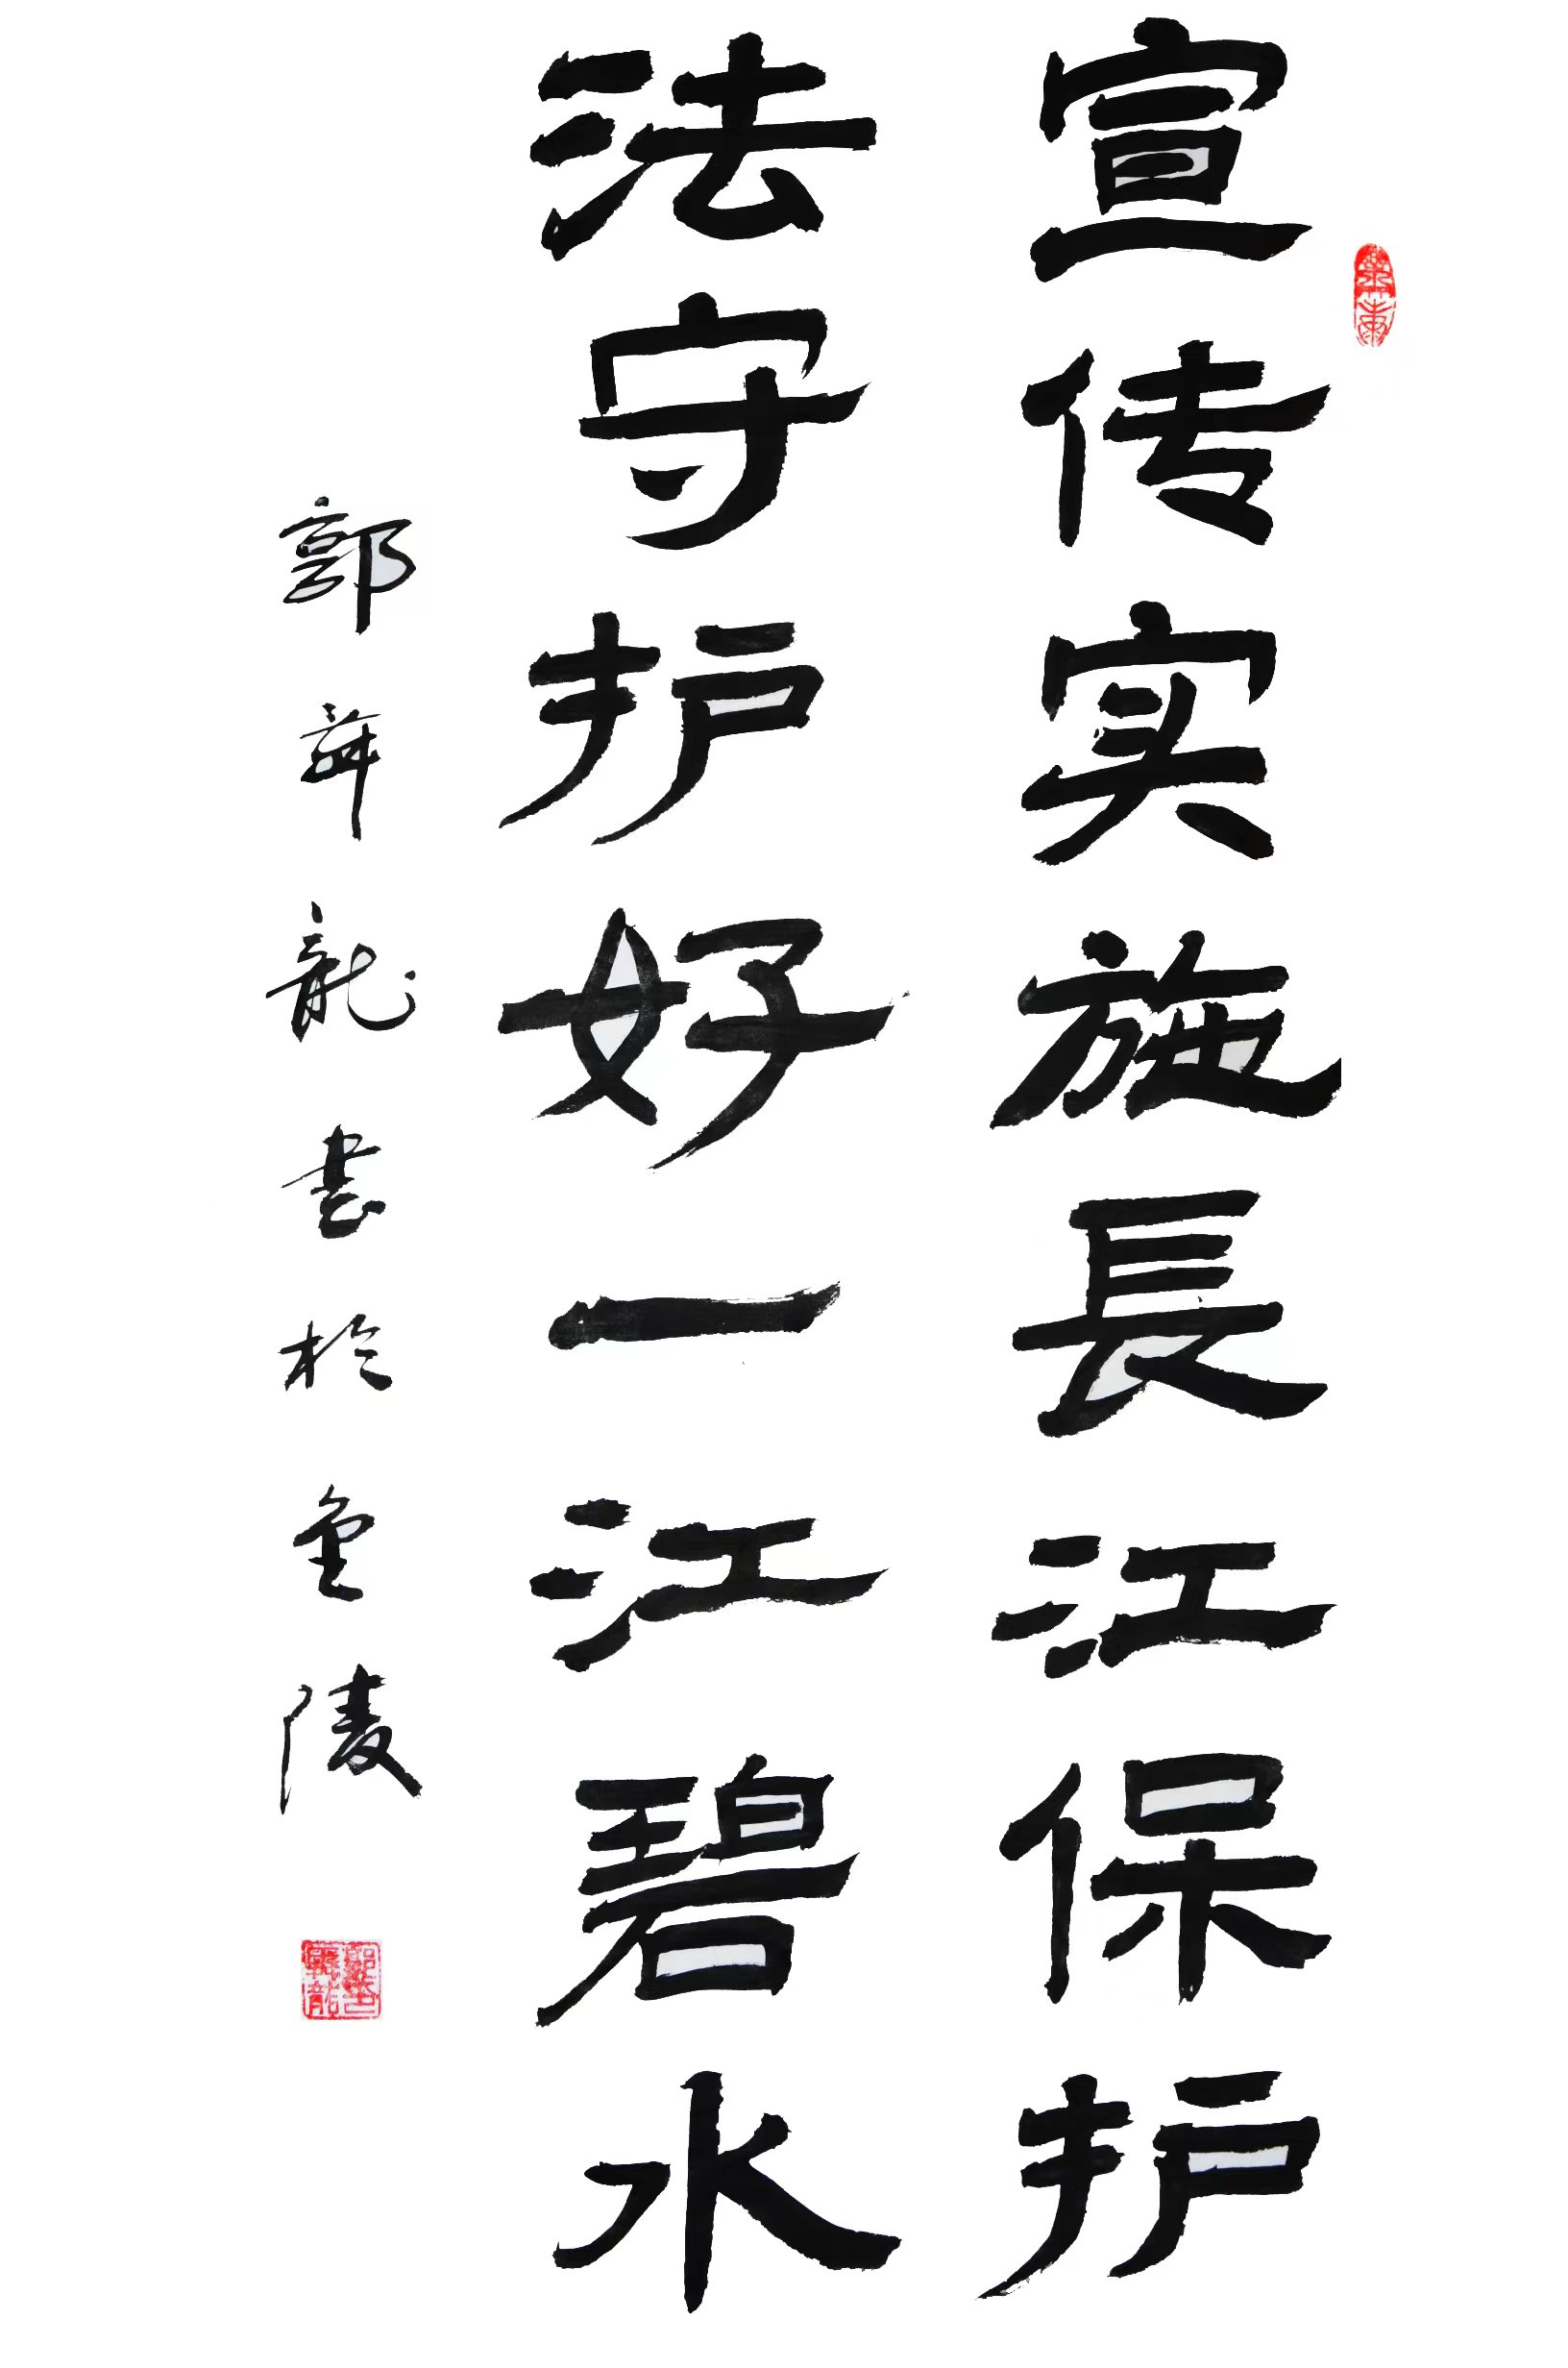 宣传实施長江保护
法守护好一江碧水
郭龍書於金陵